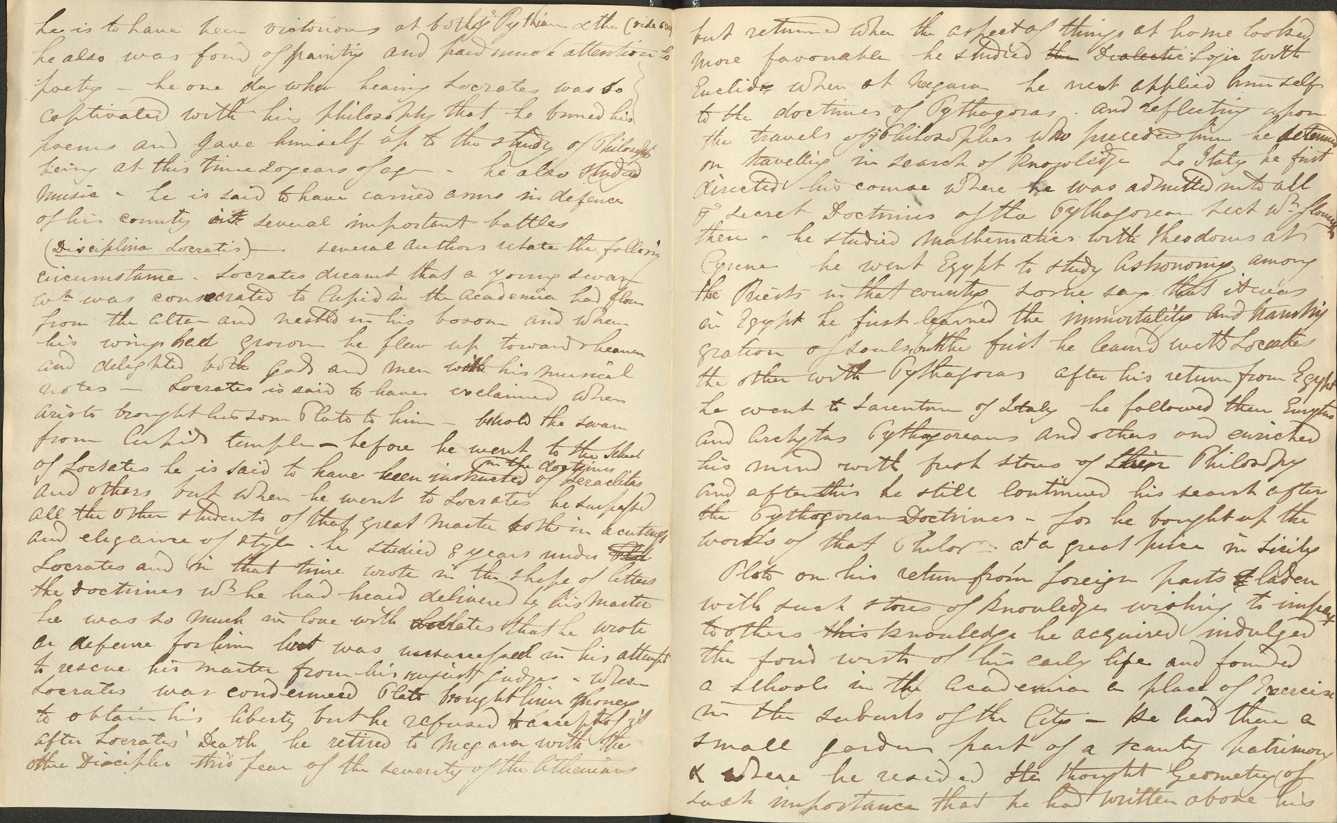 he is to have been victorious at both ye Pythian & the (vide
he also was fond of painting and paid much attention to
poetry – he one day when hearing Socrates was so
captivated with his philosophy that he burned his
poems and gave himself up to the study of Philosophy
being at this time 20 years of age – he also studied
Music – he is said to have carried arms in defence
of his country in several important battles
(Disciplina Socratis) – several authors relate the following
circumstance – Socrates dreamt that a young swan
wch was consecrated to Cupid in the Academia had flown
from the altar and nestled in his bosom and when
his wings had grown he flew up towards heaven
and delighted both Gods and men with his musical
notes – Socrates is said to have exclaimed when
Aristo brought his son Plato to him – behold the swan
from Cupids temple – before he went to the School
of Socrates he is said to have been instructed in the doctrines of Heraclitus
and others but when he went to Socrates he surpassed
all the other students of that great Master both in acuteness
and elegance of style – he studied 8 years under
Socrates and in that time wrote in the shape of letters
the Doctrines wch he had heard delivered by his Master
he was so much in love with Socrates that he wrote
a defence for him but was unsuccessful in his attempt
to rescue his master from his unjust judges – when
Socrates was condemned Plato brought him money
to obtain his liberty but he refused to accept of it
after Socrates' Death he retired to Megara with the
other Disciples thro' fear of the severity of the Athenians
but returned when the aspect of things at home looked
more favourable he studied the Dialectic Logic with
Euclides when at Megara he next applied himself
to the doctrines of Pythagoras – and reflecting upon
the travels of ye philosophers who preceded him he determined
on travelling in search of knowledge to Italy he first
directed his course where he was admitted into all
ye secret Doctrines of the Pythagorean sect wch flourished
there – he studied Mathematics with Theodorus at
Cyrene he went Egypt to study Astronomy among
the Priests in that country some say that it was
in Egypt he first learned the immortality and transmi
gration of souls the first he learned with Socrates
the other with Pythagoras after his return from Egypt
he went to Tarentum of Italy he followed then Eurytus
and Archytas Pythagoreans and others and enriched
his mind with fresh stores of their Philosophy
and after this he still continued his search after
the Pythagorean Doctrines – for he bought up the
works of that Philosr at a great price in Sicily
Plato on his return from foreign parts laden
with such stores of knowledge wishing to impart
to others this knowledge he acquired indulged
the fond wish of his early life and founded
a schools in the Academia a place of Exercise
in the suburbs of the City – He had there a
small garden part of a scanty patrimony
& where he resided he thought Geometry of
such importance that he had written above his